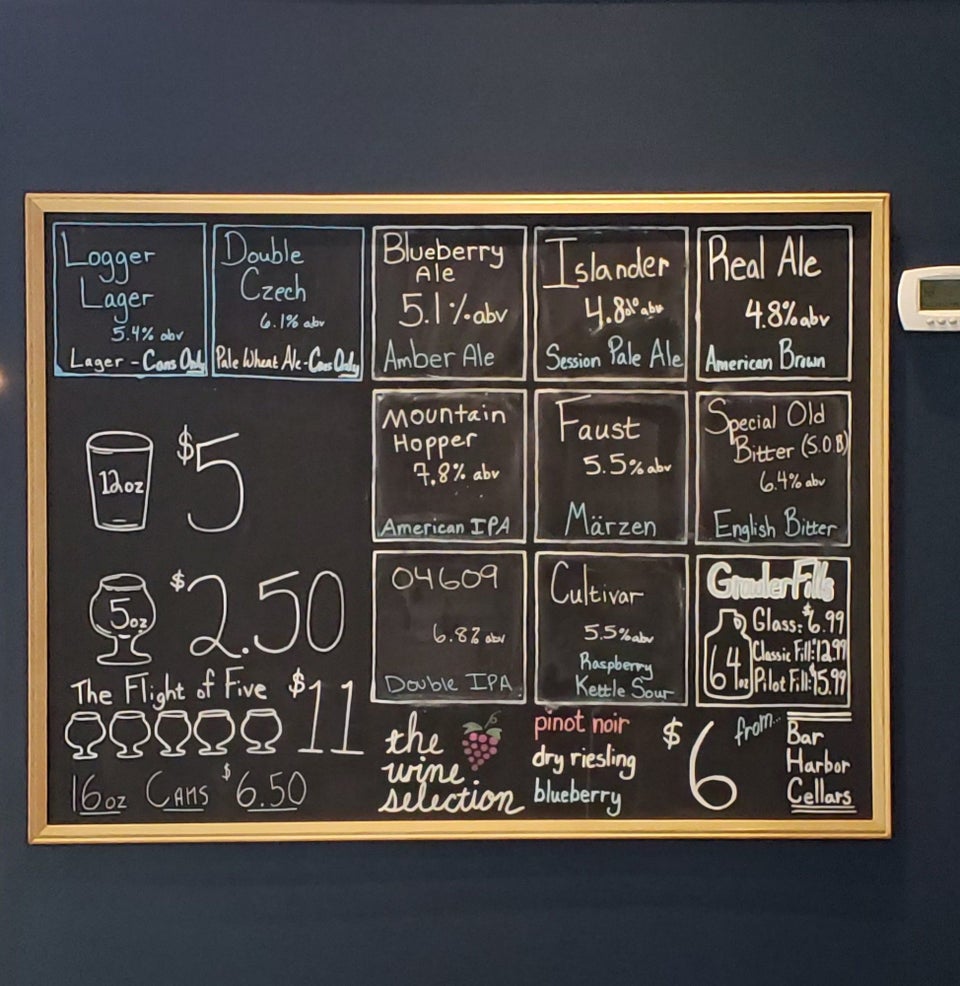 Logger
Lager
5.4% abv
Lager - Cans Only
Double
Czech
6.1% abv
Pale Wheat Ale - Cans Only
Blueberry
Ale
5.1% abv
Amber Ale
Islander
4.8% abv
Session Pale Ale
Real Ale
4.8% abv
American Brown
12oz
$5
Mountain
Hopper
7.8% abv
American IPA
Faust
5.5% abv
Märzen
Special Old
Bitter (S.O.B)
6.4% abv
English Bitter
5oz
$2.50
The Flight of Five $11
16oz Cans $6.50
04609
6.8% abv
Double IPA
Cultivar
5.5% abv
Raspberry
Kettle Sour
Growler Fills
64oz
Glass: $6.99
Classic Fill: 12.99
Pilot Fill: 15.99
the
wine
selection
pinot noir
dry riesling
blueberry
$6
from...
Bar
Harbor
Cellars